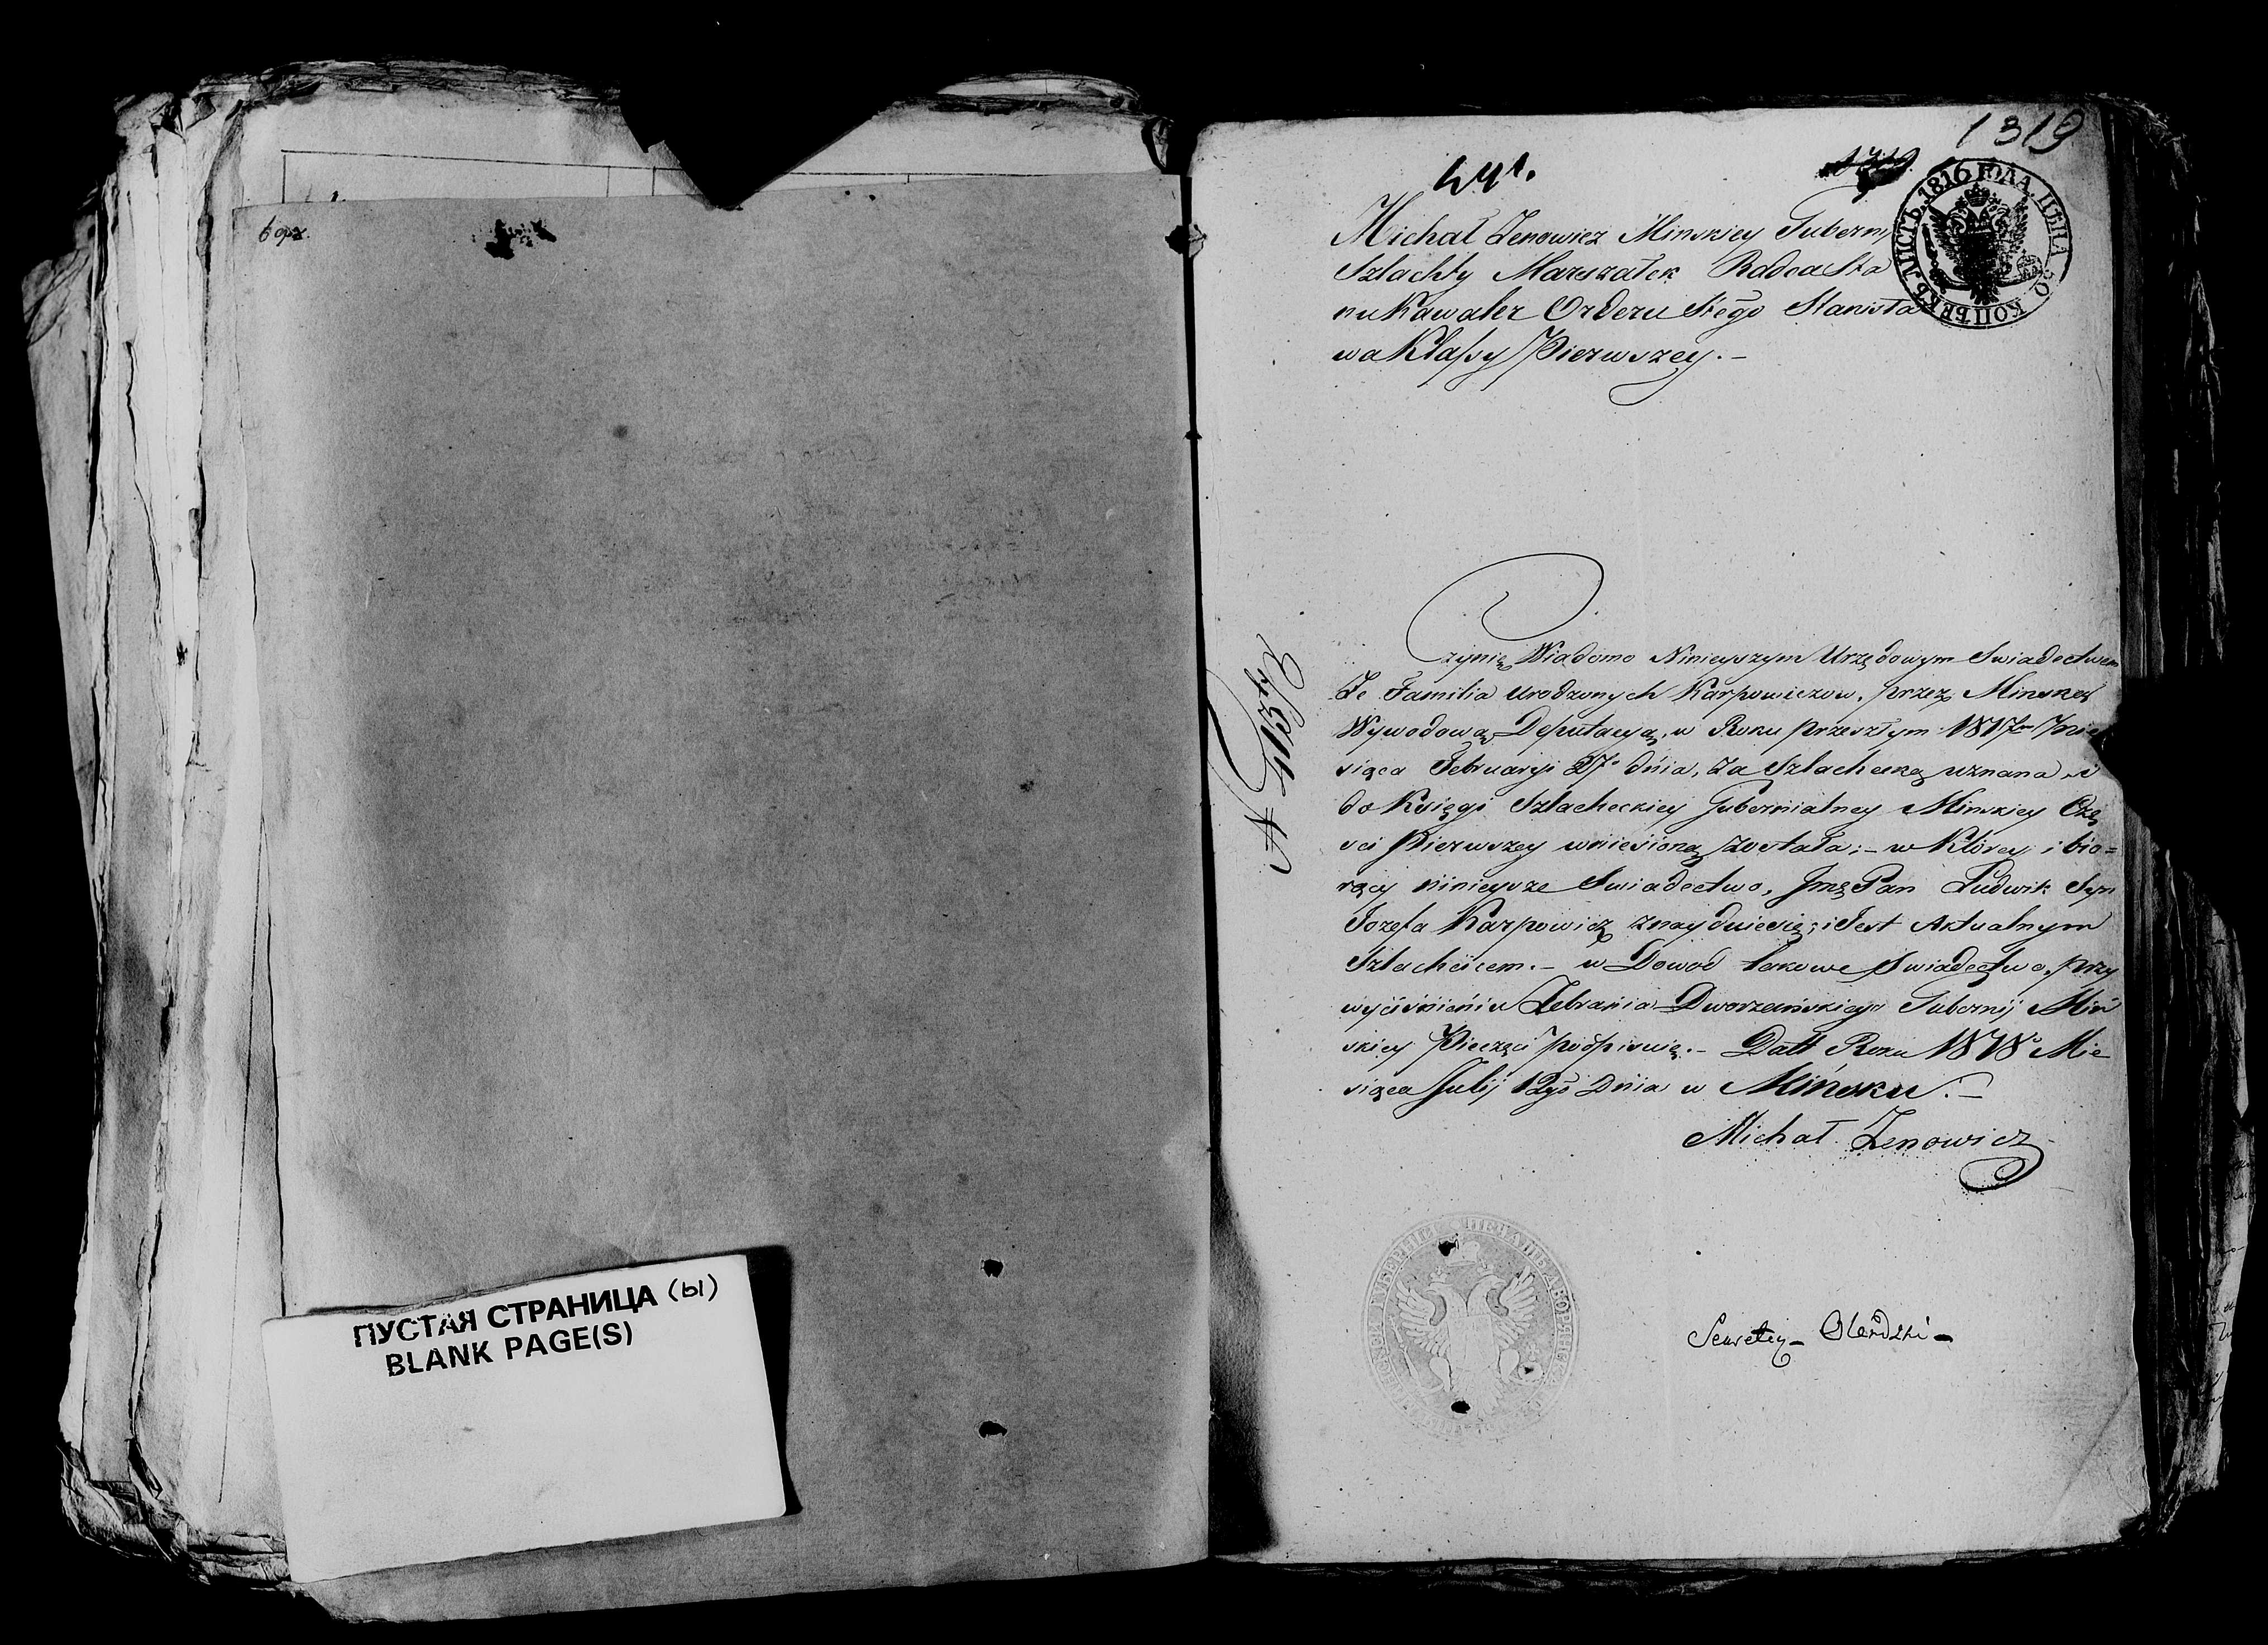 1319
441.
ЛИСТЪ. 1816 ГОДА. ЦѢНА 50 КОПѢЕКЪ.
Michał Zenowicz Minskiey Guberny
Szlachty Marszałek Radca Sta
nu Kawaler Orderu Stego Stanisła
wa Klassy Pierwszey. –
Czynię Wiadomo Ninieyszym Urzędowym Swiadectwem
Że Familia Urodzonych Karpowiczow, przez Minską
Wywodową Deputacyą, w Roku przeszłym 1817 Mie
siąca Februaryi 27 dnia, Za Szlachecką uznana i
do Księgi Szlacheckiey Gubernialney Minskiey Czę
sci Pierwszey wniesioną została; – w Którey i bio=
rący ninieysze Swiadectwo, Jmć Pan Ludwik Syn
Jozefa Karpowicz znayduiesię; i Jest Aktualnym
Szlachcicem. – w Dowod takowe Swiadectwo, przy
wyciśnieniu Zebrania Dworzańskiego Gubernij Miń
skiey Pieczęci podpisuię. – Datt Roku 1818 Mie
siąca Julij 12go Dnia w Mińsku. –
Michał Zenowicz
ПУСТАЯ СТРАНИЦА (Ы)
BLANK PAGE(S)